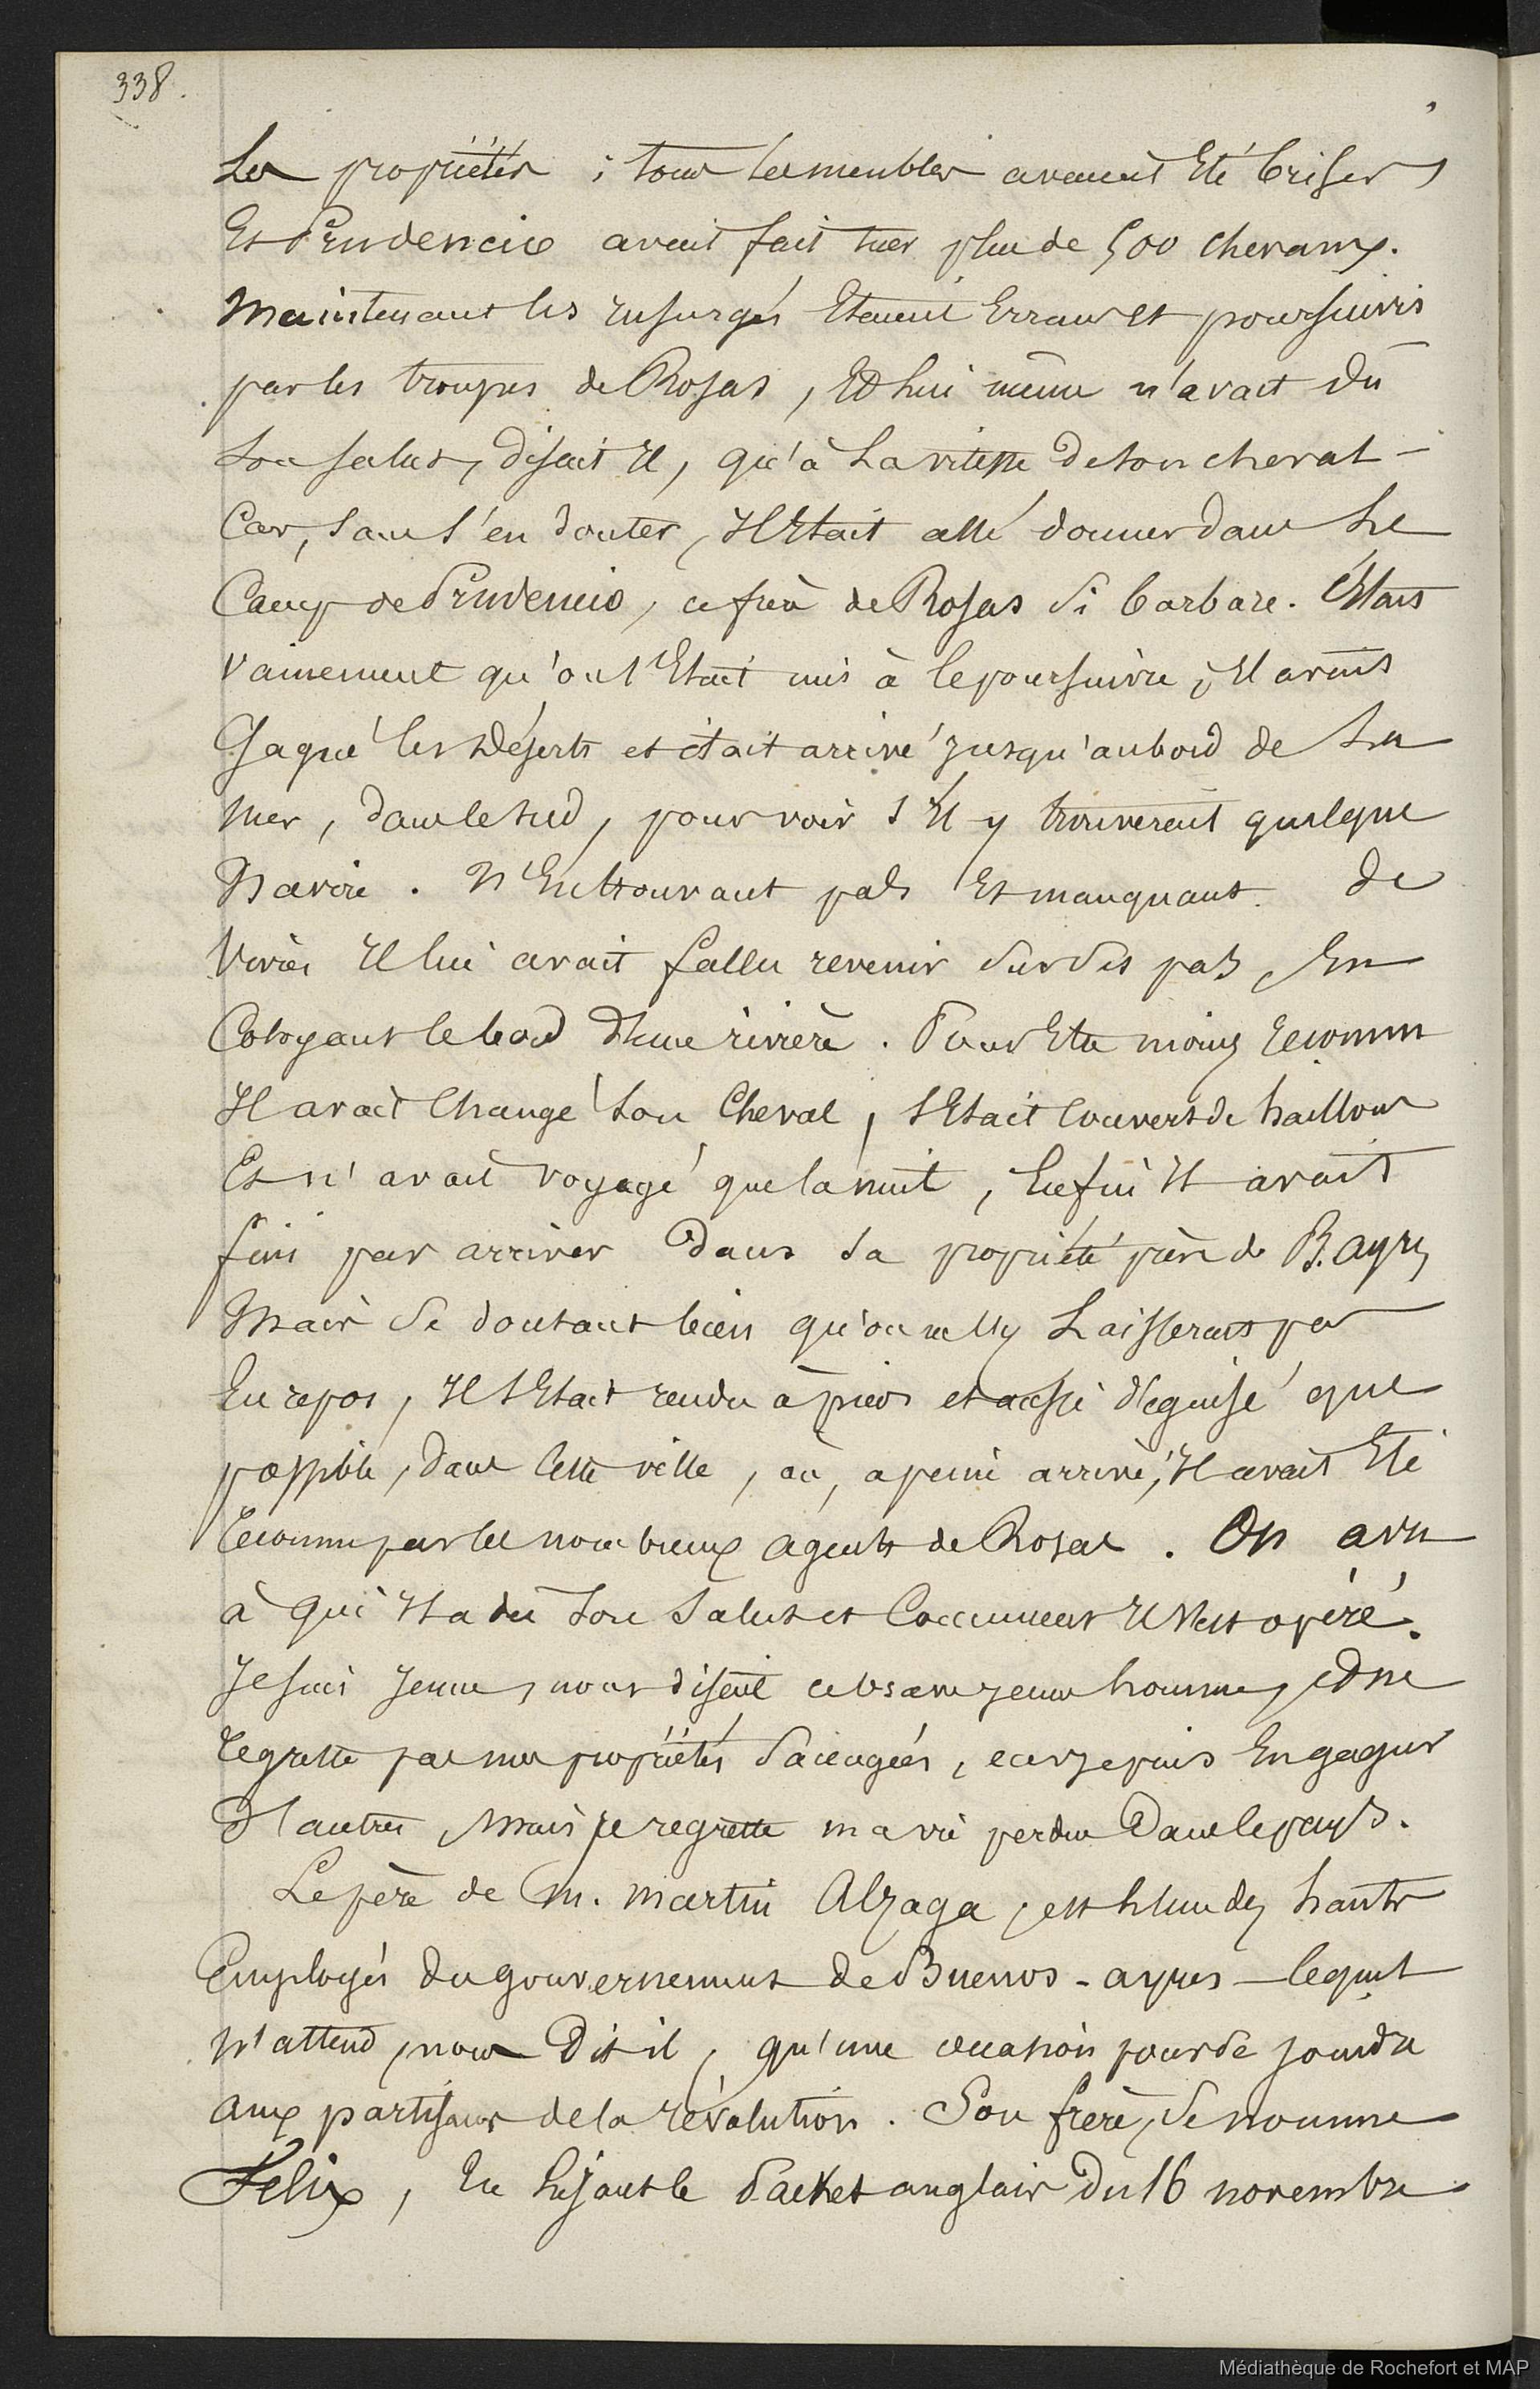 338.
Les propriétés ; tous les meubles avaient été brisés
Et Prudencio avait fait tuer plus de 500 chevaux.
Maintenant les insurgés Etaient Errans et poursuivis
par les troupes de Rosas, Et lui même n'avait dû
son salut, disait il, qu'à la vitesse de son cheval -
Car, sans s'en douter, Il Etait allé donner dans le
Camp de Prudencio, ce frère de Rosas si barbare. C'Etait
vainement qu'on s'Etait mis à le poursuivre, Il avait
Gagné les déserts et était arrivé jusqu'au bord de la
mer, dans le sud, pour voir s'Il y trouverait quelque
Navire. N'En trouvant pas Et manquant de
vivres Il lui avait fallu revenir sur ses pas, En
Cotoyant le bord d'une rivière. Pour Etre moins reconnu
Il avait Changé son Cheval, s'Etait couvert de haillons
Et n'avait voyagé que la nuit, Enfin Il avait
fini par arriver dans sa propriété près de B. ayres
Mais se doutant bien qu'on ne l'y laisserait pas
En repos, Il s'Etait rendu à pied et aussi déguisé que
possible, dans cette ville, où, a peine arrivé, Il avait Eté
reconnu par les nombreux agents de Rosas. On a vu
à qui Il a dû son salut et Comment Il s'est opéré.
Je suis jeune, nous disait ce brave jeune homme, et ne
regrette pas mes propriétés saccagées, car je puis En gagner
d'autres, Mais je regrette ma vie perdue dans le pays.
Le père de M. Martin Alzaga, est l'un des hauts
Employés du gouvernement de Buenos-ayres - lequel
n'attend, nous Dit-il, qu'une occasion pour se joindre
aux partisans de la révolution. Son frère, se nomme
Felix, En le packet anglais Du 16 novembre
Médiathèque de Rochefort et MAP